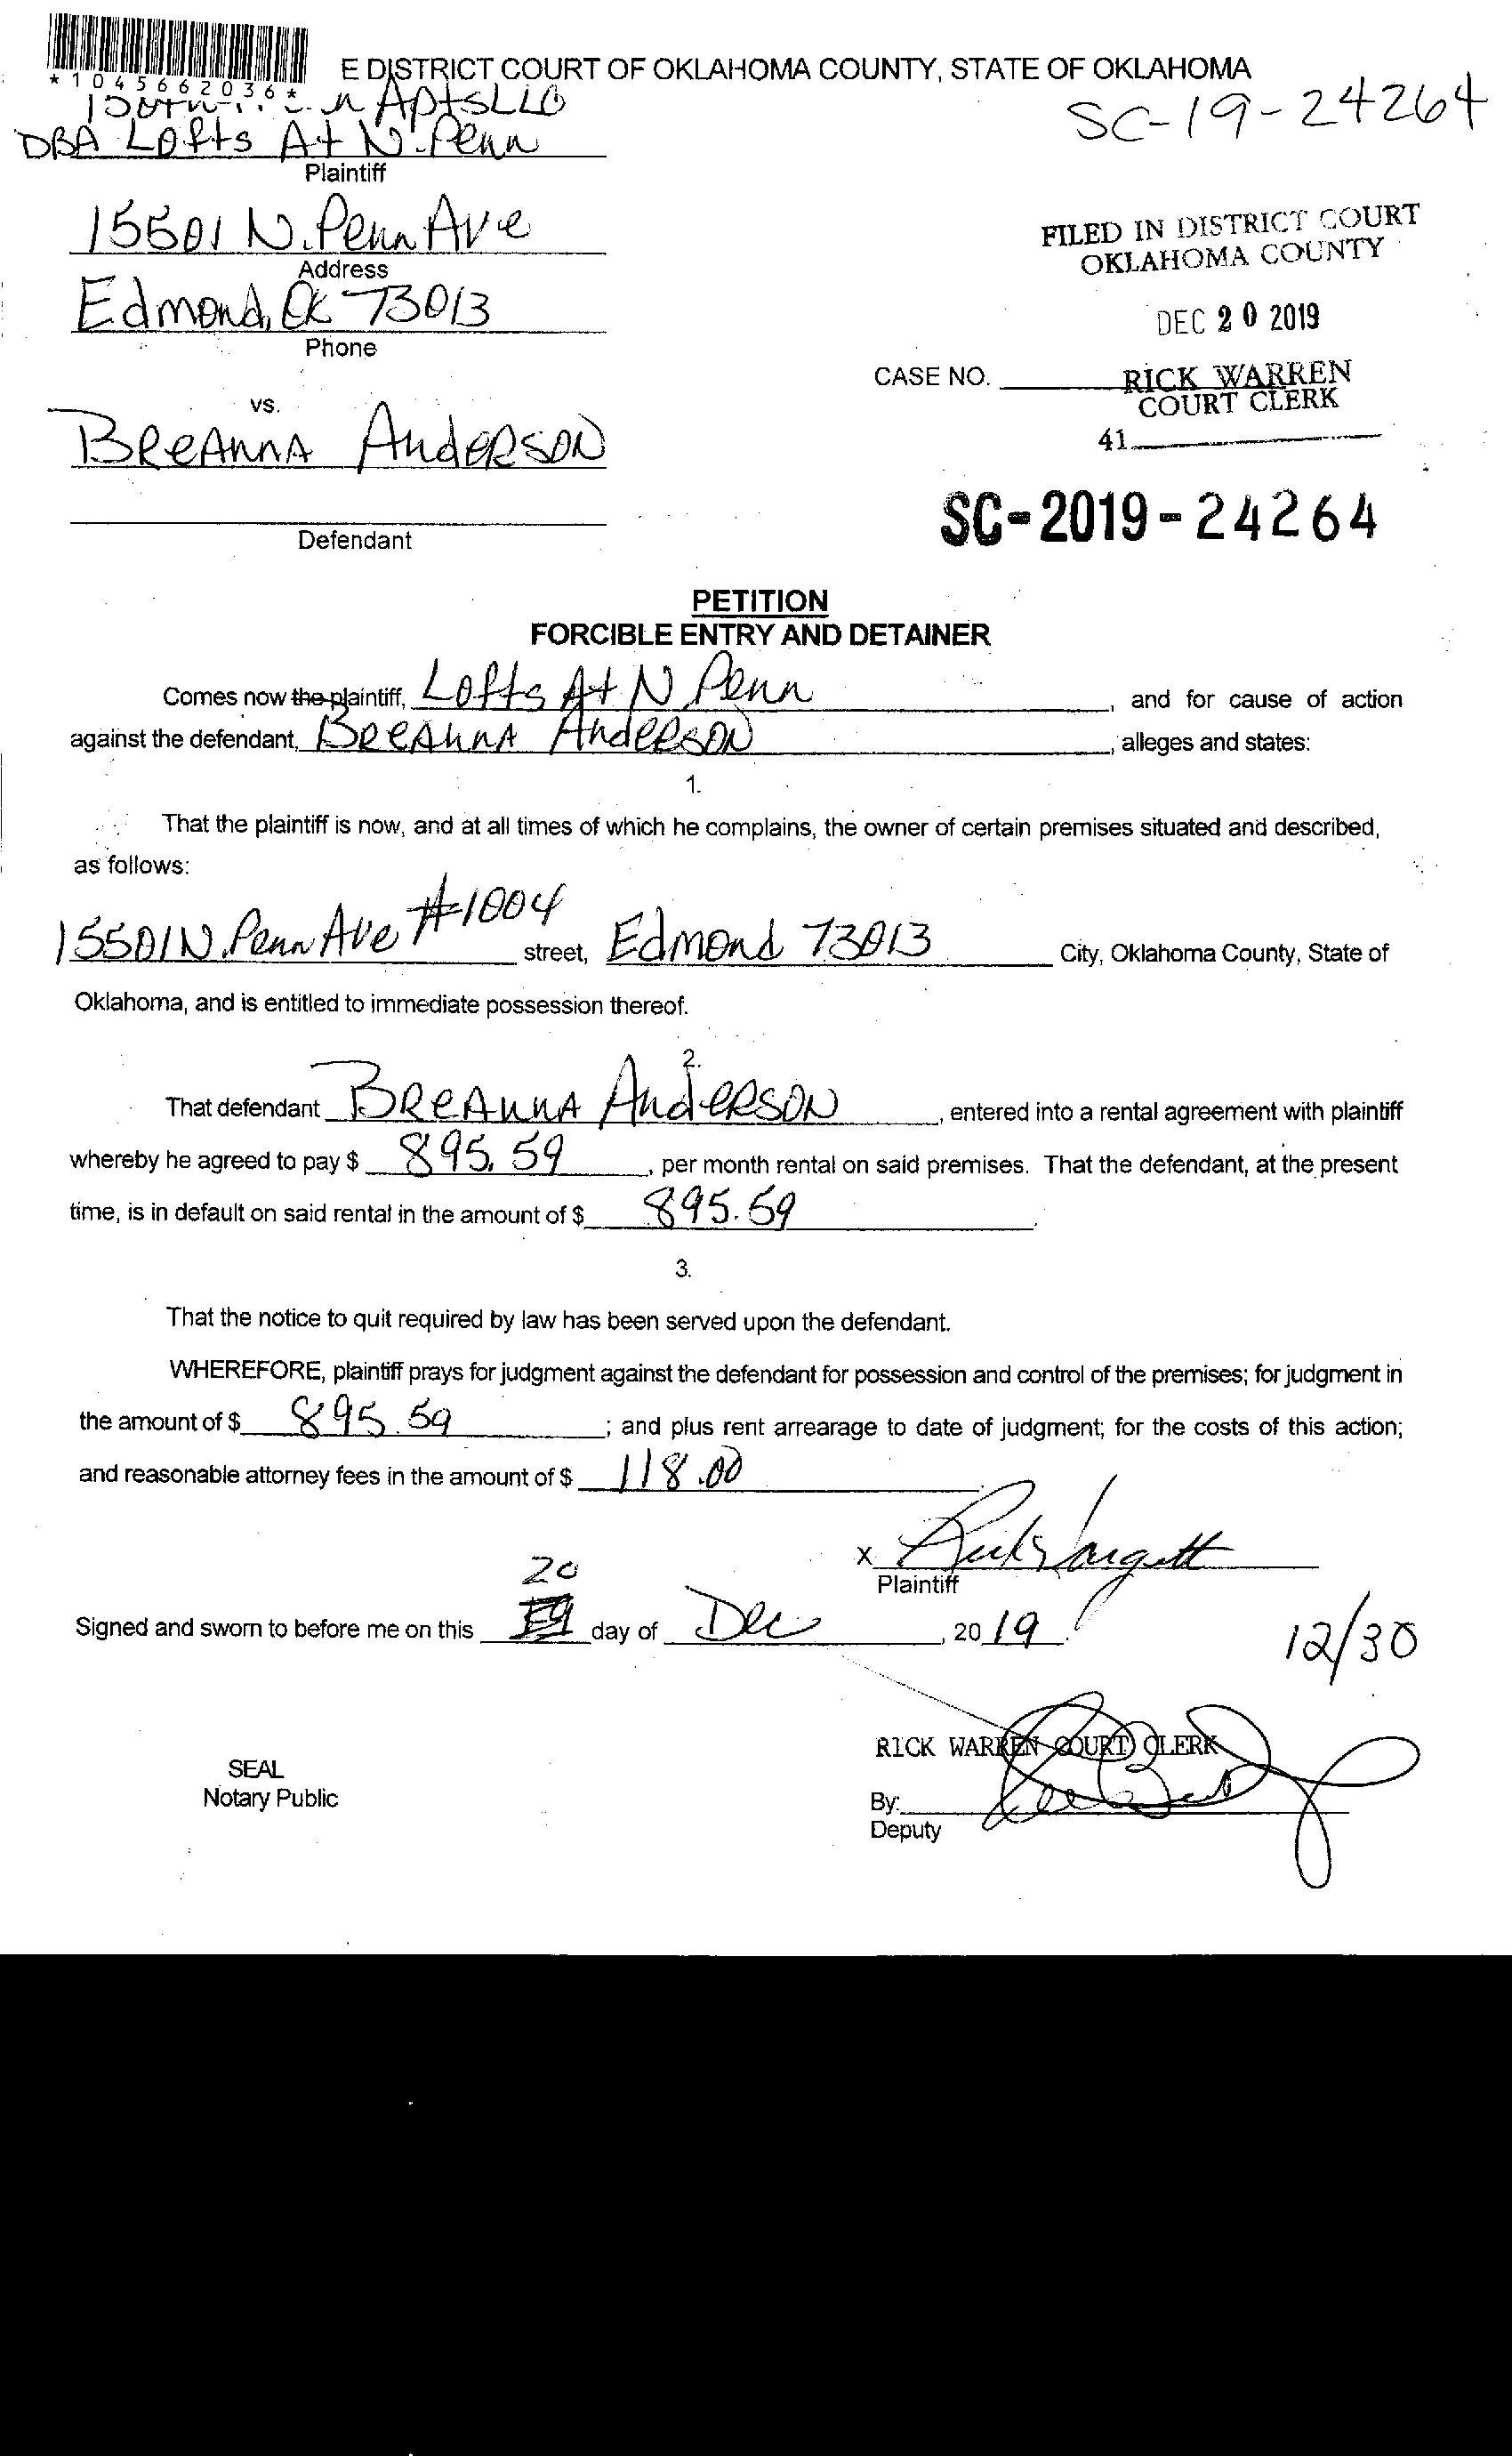 *1045662036*
E DISTRICT COURT OF OKLAHOMA COUNTY, STATE OF OKLAHOMA
Apts LLC
SC-19-24264
DBA Lofts At N. Penn
Plaintiff
15501 N. Penn Ave
Address
FILED IN DISTRICT COURT
OKLAHOMA COUNTY
Edmond, OK 73013
Phone
DEC 20 2019
CASE NO.
RICK WARREN
COURT CLERK
vs.
BreAnna Anderson
41
Defendant
SC-2019-24264
PETITION
FORCIBLE ENTRY AND DETAINER
Comes now the plaintiff, Lofts At N Penn, and for cause of action
against the defendant, BreAnna Anderson, alleges and states:
1.
That the plaintiff is now, and at all times of which he complains, the owner of certain premises situated and described,
as follows:
15501 N. Penn Ave #1004 street, Edmond 73013 City, Oklahoma County, State of
Oklahoma, and is entitled to immediate possession thereof.
2.
That defendant BreAnna Anderson, entered into a rental agreement with plaintiff
whereby he agreed to pay $ 895.59, per month rental on said premises. That the defendant, at the present
time, is in default on said rental in the amount of $ 895.59.
3.
That the notice to quit required by law has been served upon the defendant.
WHEREFORE, plaintiff prays for judgment against the defendant for possession and control of the premises; for judgment in
the amount of $ 895.59; and plus rent arrearage to date of judgment; for the costs of this action;
and reasonable attorney fees in the amount of $ 118.00.
x
Plaintiff
20
Signed and sworn to before me on this day of Dec, 2019.
12/30
RICK WARREN COURT CLERK
SEAL
Notary Public
By:
Deputy